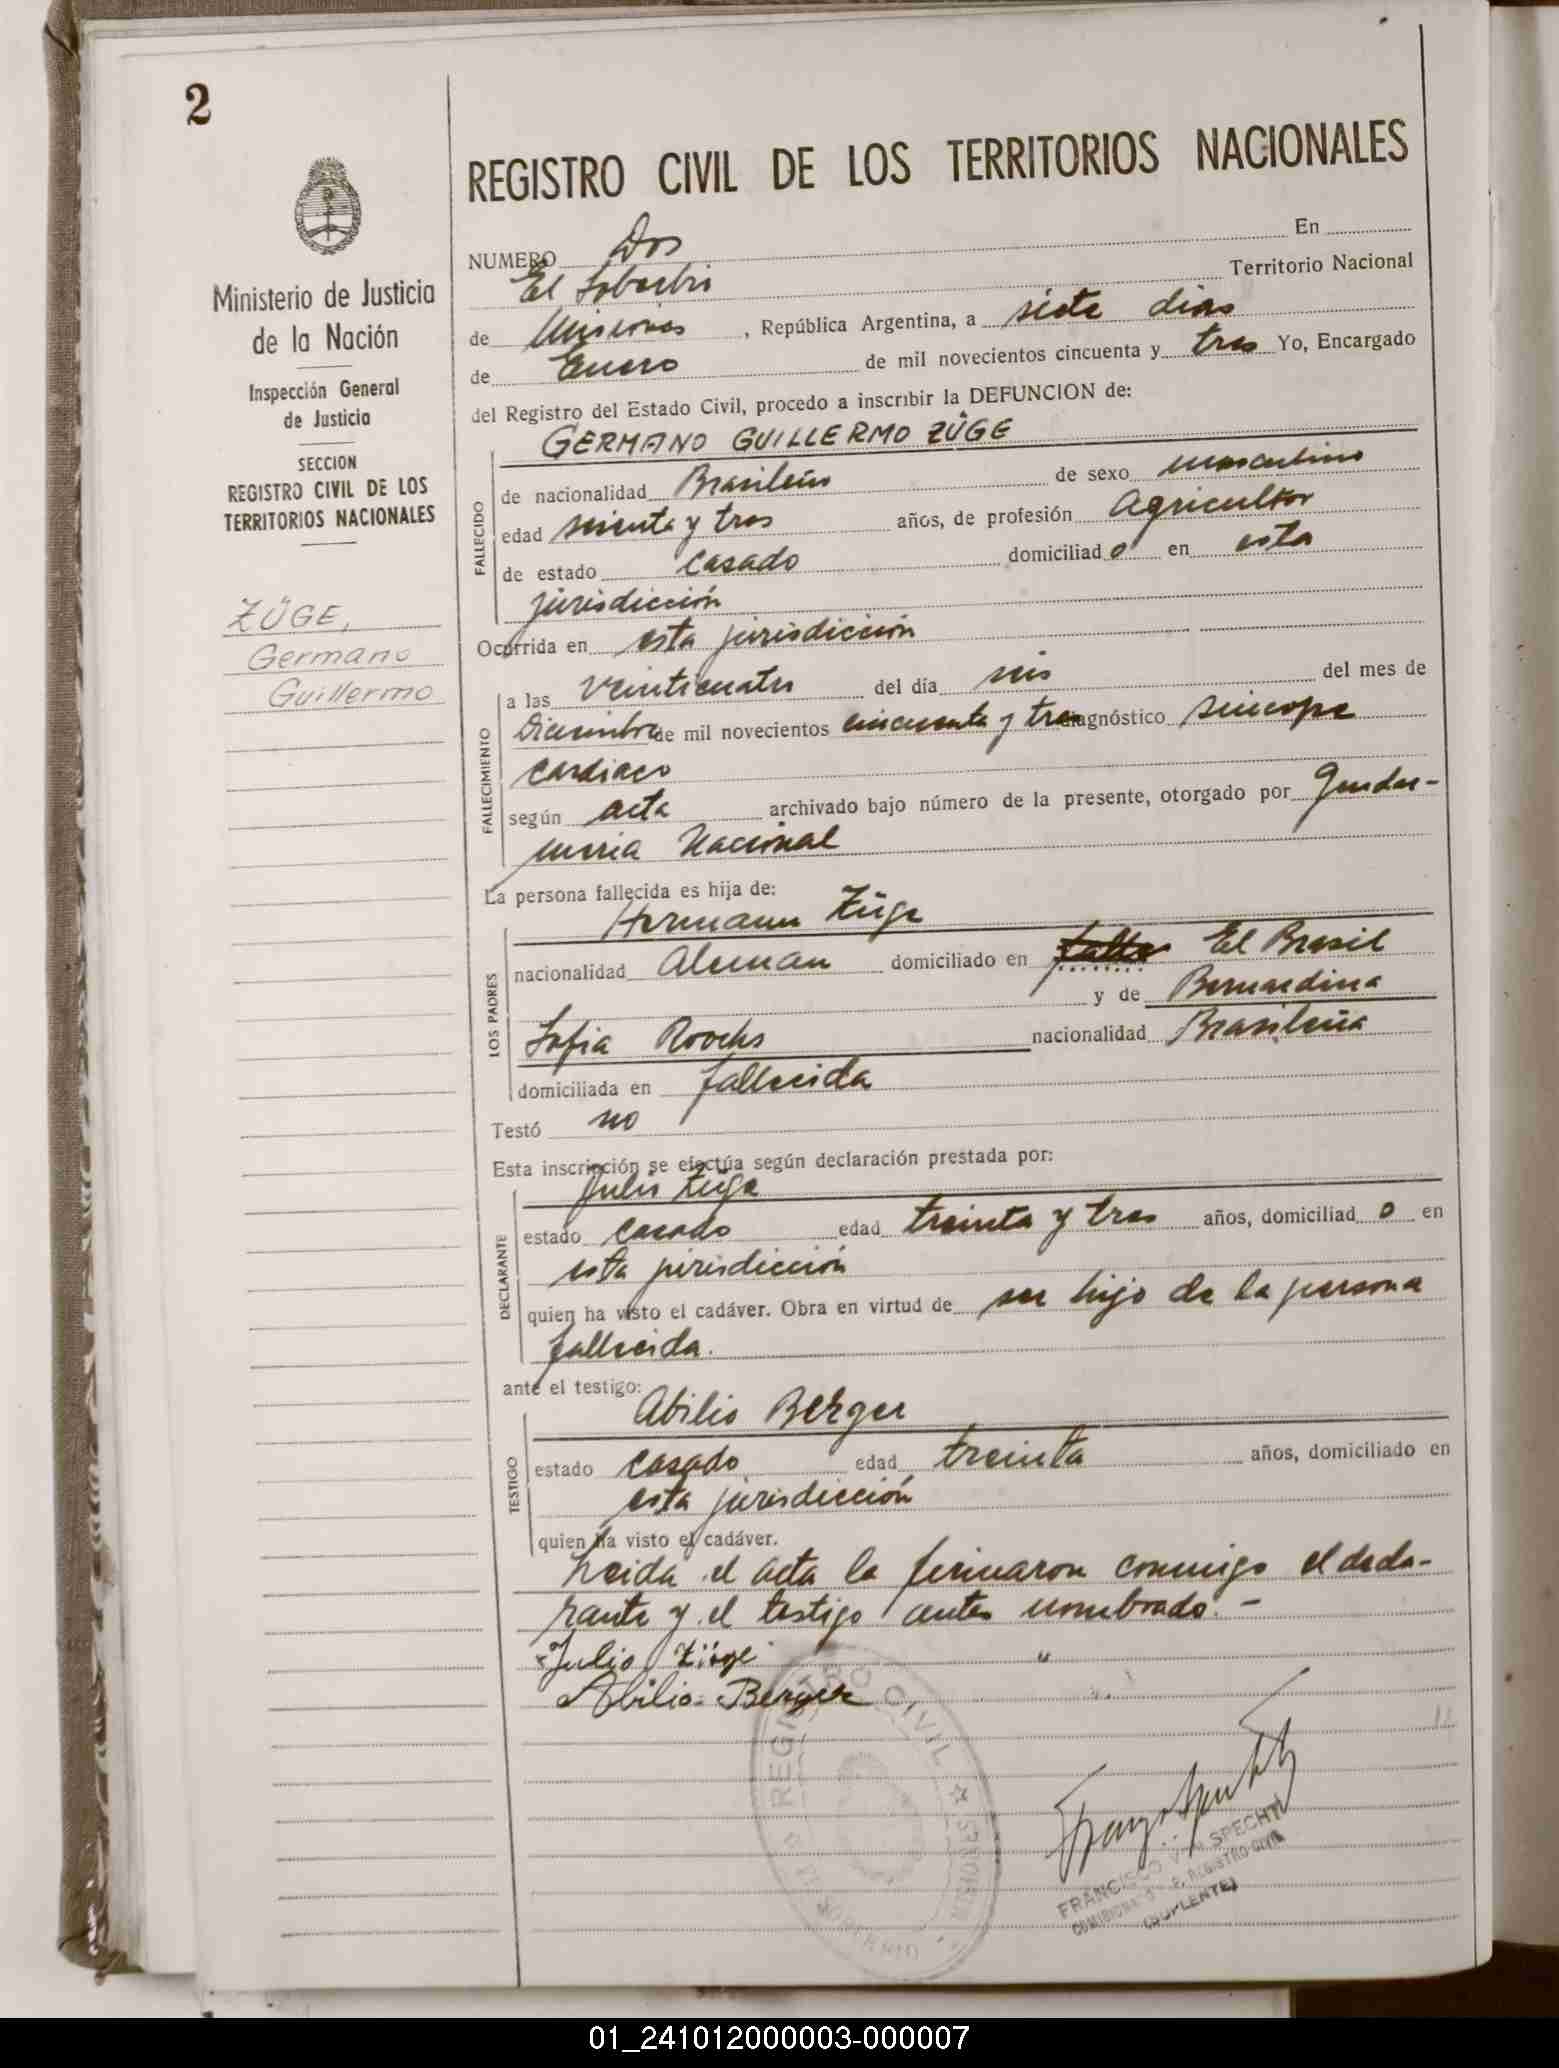 2
REGISTRO CIVIL DE LOS TERRITORIOS NACIONALES
Ministerio de Justicia
de la Nación
Inspección General
de Justicia
SECCION
REGISTRO CIVIL DE LOS
TERRITORIOS NACIONALES
ZÜGE,
Germano
Guillermo
NUMERO Dos En
El Soberbio Territorio Nacional
de Misiones, República Argentina, a siete dias
de Enero de mil novecientos cincuenta y tres Yo, Encargado
del Registro del Estado Civil, procedo a inscribir la DEFUNCION de:
GERMANO GUILLERMO ZÜGE
FALLECIDO
de nacionalidad Brasileño de sexo masculino
edad sesenta y tres años, de profesión Agricultor
de estado casado domiciliado en esta
jurisdicción
Ocurrida en esta jurisdicción
FALLECIMIENTO
a las veinticuatro del día seis del mes de
Diciembre de mil novecientos cincuenta y tres diagnóstico sincope
cardiaco
según acta archivado bajo número de la presente, otorgado por Gendar-
meria Nacional
La persona fallecida es hija de:
LOS PADRES
Hermann Züge
nacionalidad Aleman domiciliado en El Brasil
y de Bernardina
Sofia Roocks nacionalidad Brasileña
domiciliada en fallecida
Testó no
Esta inscripción se efectúa según declaración prestada por:
DECLARANTE
Julio Züge
estado casado edad treinta y tres años, domiciliado en
esta jurisdicción
quien ha visto el cadáver. Obra en virtud de ser hijo de la persona
fallecida.
ante el testigo:
TESTIGO
Abilio Berger
estado casado edad treinta años, domiciliado en
esta jurisdicción
quien ha visto el cadáver.
Leida el acta la firmaron conmigo el decla-
rante y el testigo antes nombrado.-
Julio Züge
Abilio Berger
REGISTRO CIVIL
EL SOBERBIO
MISIONES
FRANCISCO SPECHT
REGISTRO CIVIL
(SUPLENTE)
01_241012000003-000007